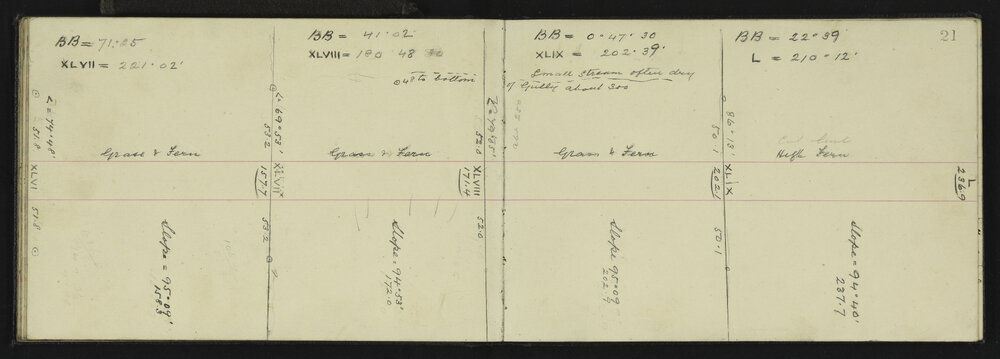 21
BB = 71·25
XLVII = 221·02'
∠ = 74·48'
51.8 XLVI 51.8
Grass & Fern
Slope = 95·09'
158.3
BB = 41·02'
XLVIII = 180 48 30
48 to bottom
∠ 69·53'
53.2 XLVII 53.2
157.7
Grass & Fern
Slope = 94·53'
172.0
BB = 0·47'·30
XLIX = 202·39'
Small stream often dry
of Gully about 300
52.0 XLVIII 52.0
171.4
Grass & Fern
Slope 95·09
BB = 22·39'
L = 210·12'
86·13'
50.1 XLIX 50.1
202.1
High Fern
L
236.9
Slope = 94·40'
237.7